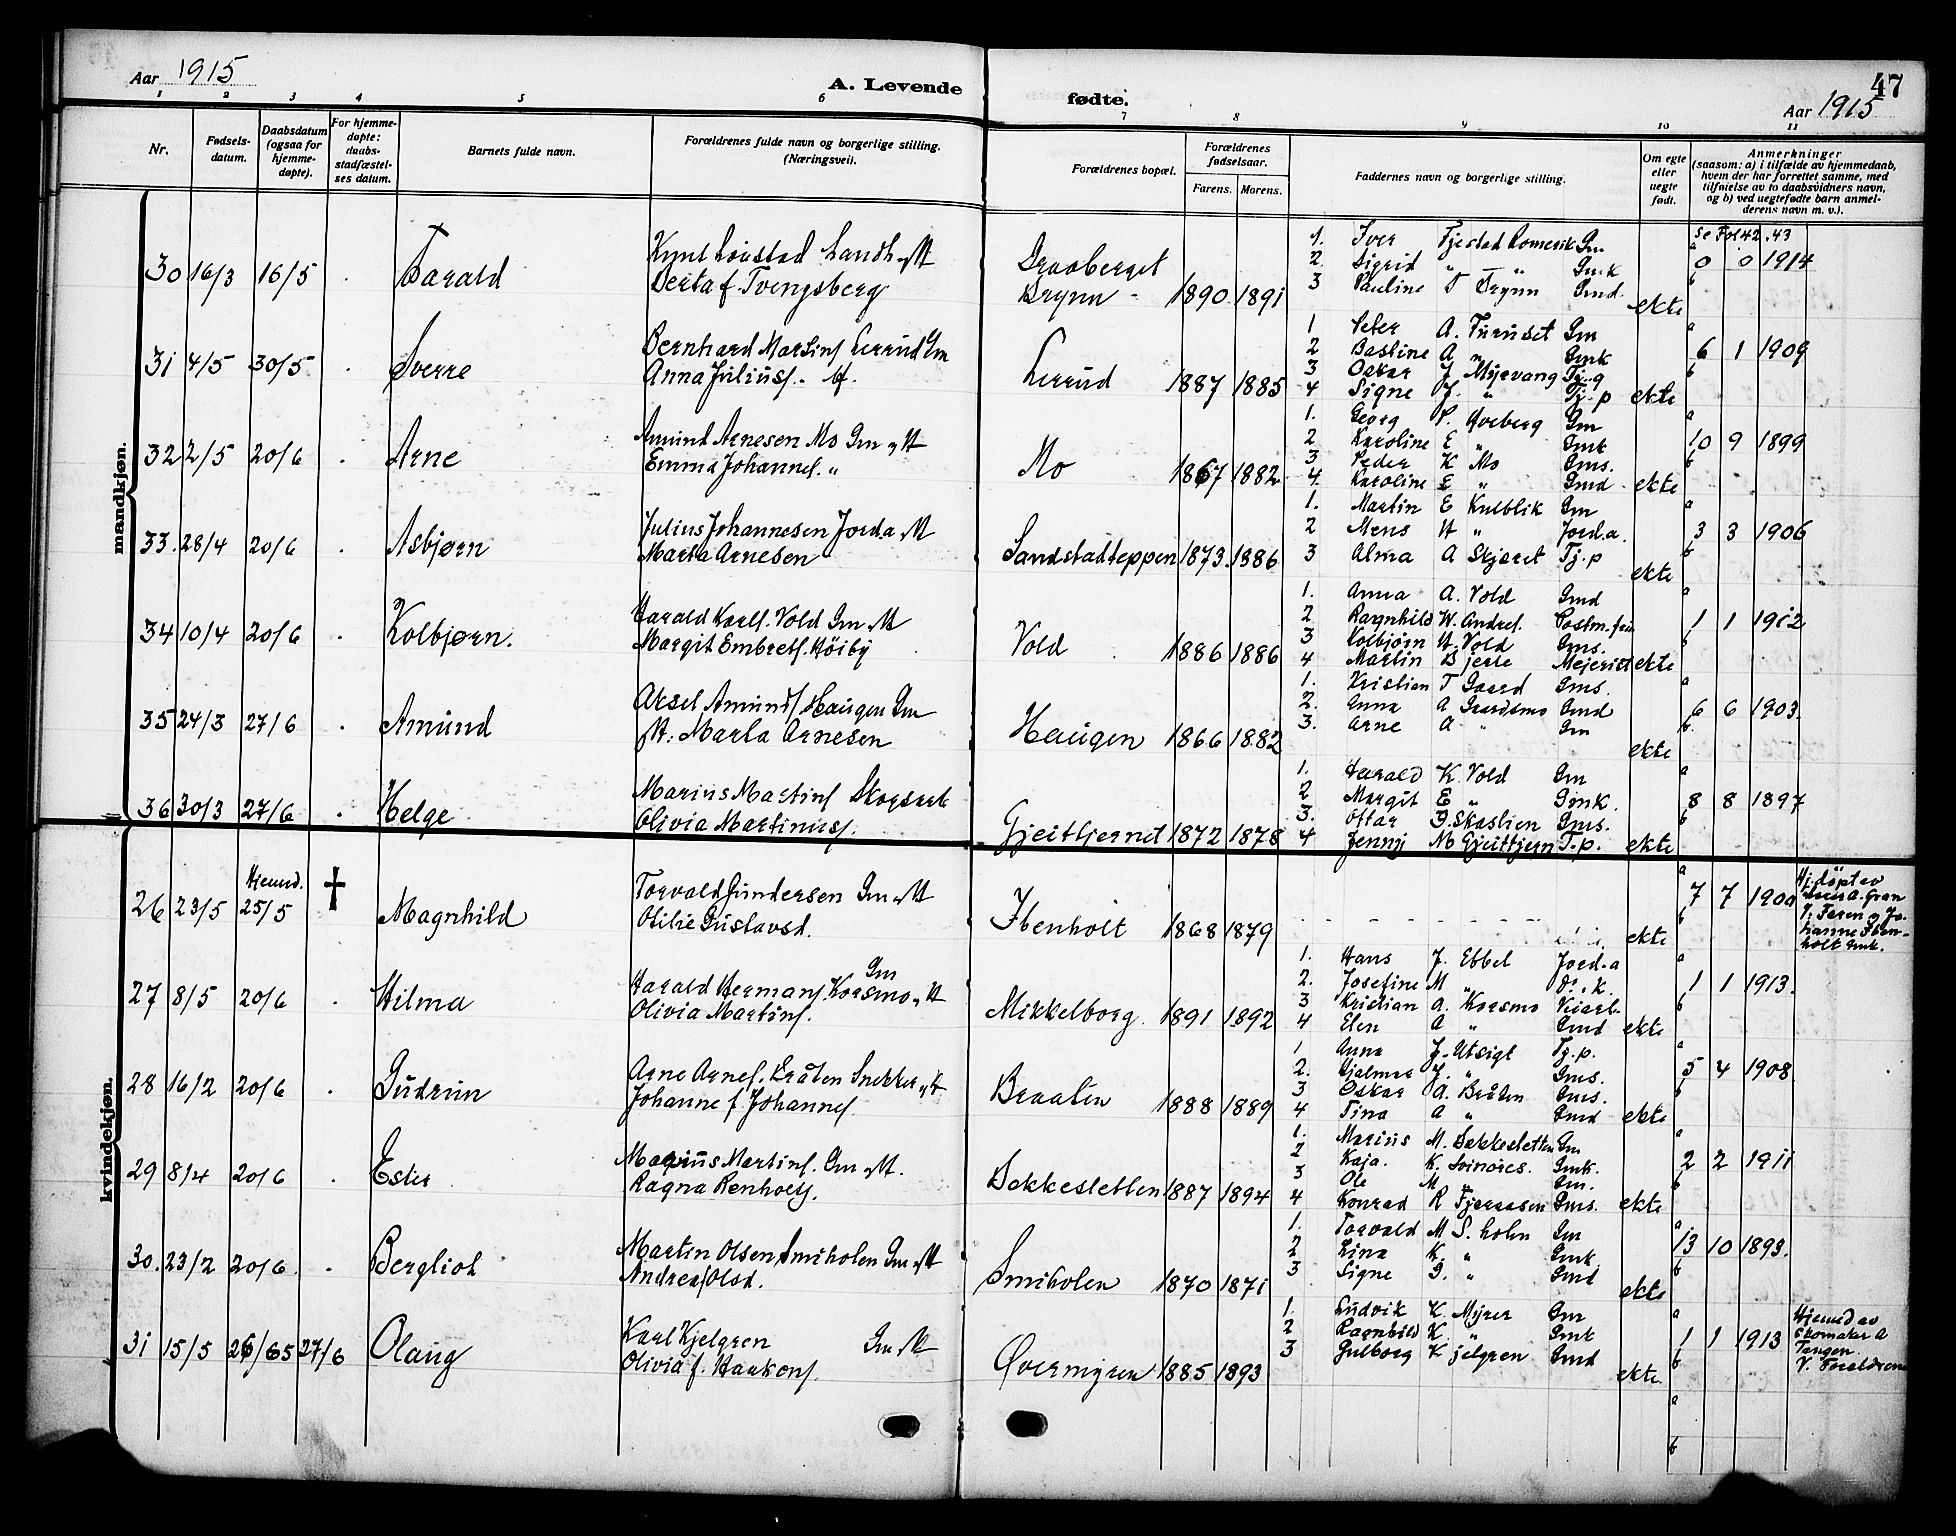 Aar 1915
A. Levende
fødte.
47
Aar 1915
1 2 3 4 5 6 7 8 9 10 11
Nr.
Fødsels-datum.
Daabsdatum (ogsaa for hjemme-døpte).
For hjemme-døpte: daabs-stadfæstel-ses datum.
Barnets fulde navn.
Forældrenes fulde navn og borgerlige stilling. (Næringsvei).
Forældrenes bopæl.
Forældrenes fødselsaar.
Farens. Morens.
Faddernes navn og borgerlig stilling.
Om egte eller uegte født.
Anmerkninger
(saasom: a) i tilfælde av hjemmedaab, hvem der har forrettet samme, med tilføielse av to daabsvidners navn, og b) ved uegtefødte barn anmel-derens navn m. v.).
mandkjøn.
Se Fol 42.43
30 16/3 16/5 Harald
Tvengsberg
Graaberget
Brynn - 1890 1891
1. Iver Fjestad Romerik Gm
2. Sigrid " " Gmk
3 Pauline T Brynn Gmd.
ekte
a 0 0 1914
b
31 4/5 30/5 . Sverre
Bernhard Martins Lerrud Gm
Anna Julius.
Lerrud 1887 1885
1 Peter A. Furuset Gm
2 Bastine A " Gmk
3 Oskar J Myrvang Tj.g
4 Signe J. " Tj. p
ekte
a 6 1 1909
b
32 2/5 20/6 . Arne
Amund Arnesen Mo Gm
Emma Johannes. "
Mo 1867 1882
1. Georg P. Overberg Gm
2 Karoline E " Gmk
3 Peder K Mo Gms.
4. Karoline E " Gmd
ekte
a 10 9 1899
b
33. 28/4 20/6 . Asbjørn
Julius Johannesen Jord.a.
Marta Arnesen
Sandstadteppen 1873. 1886
1. Martin E Kulblik Gm
2 Mens H " Jord.a.
3 Alma A Skjæret Tj. p
ekte
a 3 3 1906
b
34 10/4 20/6 . Kolbjørn.
Harald Karls. Vold Gm
Margit Embrets. Høiby
Vold 1886 1886
1. Anna A. Vold Gmd
2 Ragnhild W. Andres. Postm.
3 Kolbjørn H. Vold Gms.
4 Martin Bjerke
ekte
a 1 1 1912
b
35 24/3 27/6 . Amund
Aksel Amunds Haugen Gm
Marta Arnesen
Haugen 1866 1882
1. Kristian T Gaard Gms.
2. Anna A Gaardsmo Gmd
3. Arne A " Gm
ekte
a 6 6 1903.
b
36 30/3 27/6 . Helge
Marius Martins Skogsarb
Olivia Martinius.
Gjeittjernet 1872 1878
1. Harald K. Vold Gm
2 Margit E " Gmk.
3. Ottar G. Skaslien Gms.
4 Jenny M Gjeittjern T.p.
ekte
a 8 8 1897
b
kvindekjøn.
26 23/5 Hjemd. 25/5 † Magnhild
Torvald Gundersen Gm
Otilie Gustavsd.
Ibenholt 1868 1879
ekte
a 7 7 1900
b
Hj. døpt av
A. Gran
V: Faren og Jo-
hanne Iben-
holt Gmk.
27 8/5 20/6 . Hilma
Harald Hermans. Korsmo Gm
Olivia Martins.
Mikkelborg. 1891 1892
1. Hans J. Ebbel Jord-a
2. Josefine M " k.
3 Kristian A. Korsmo Veiarb.
4 Elen A " Gmd
ekte
a 1 1 1913.
b
28 16/2 20/6 . Gudrun
Arne Arnes. Bråten Snekker
Johanne f. Johannes
Braaten 1888 1889
1 Anna J. Utsigt Tj.p.
2. Hjalmar J. " Gms.
3 Oskar A. Bråten Gms.
4 Tina A " Gmd
ekte
a 5 4 1908
b
29 8/4 20/6 . Ester
Marius Martins. Gm
Ragna Renholts.
Sekkesletten 1887 1894
1. Marius M. Sekkesletten Gm
2 Kaja. K. Svinaas. Gmk.
3 Ole M " Gm.
4 Konrad R Fjeraasen Gms.
ekte
a 2 2 1911
b
30. 23/2 20/6. . Bergliot
Martin Olsen Smiholen Gm
Andrea Olsd.
Smiholen 1870 1871
1. Torvald M S. holen Gm
2 Lina K. " Gmk
3 Signe G. " Gmd
ekte
a 13 10 1893.
b
31 15/5 26/65 27/6 Olaug
Karl Kjelgren Gm
Olivia f. Haakons.
Overmyren 1885 1893
1. Ludvik K. Myrer Gm
2 Ragnhild K. " Gmk
3 Gulborg Kjelgren Gmd
ekte
a 1 1 1913
b
Hjemd av
Skomaker A
Tangen.
V. Foreldrene
a
b